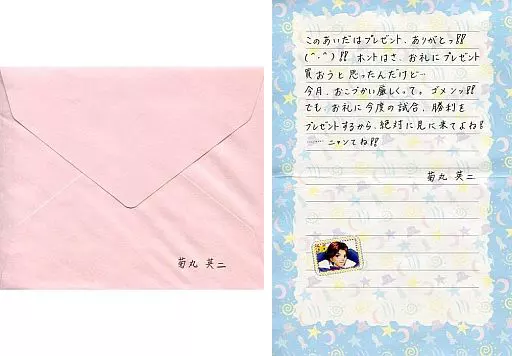 菊丸 英二
このあいだはプレゼント、ありがとっ!!
(^・^)!! ホントはさ、お礼にプレゼント
買おうと思ったんだけど…
今月、おこづかい厳しくって。ゴメンッ!!
でも、お礼に今度の試合、勝利を
プレゼントするから、絶対に見に来てよね!
……ニャンてね!!
菊丸 英二